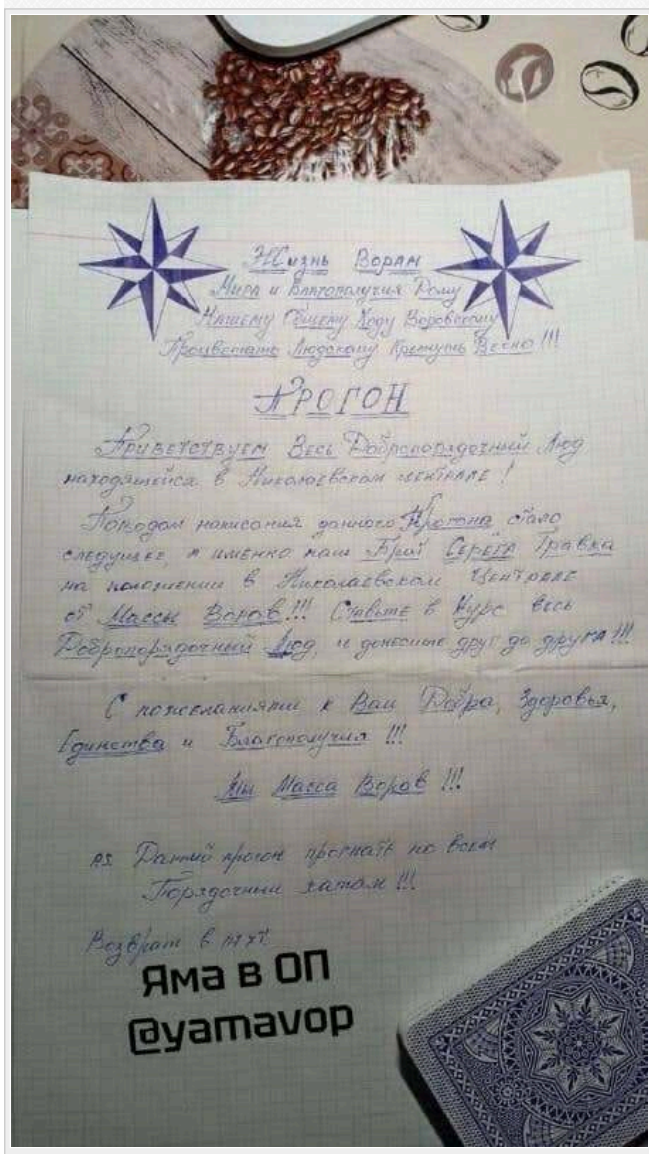 Жизнь Ворам
Мира и Благополучия Дому
Нашему Общему Ходу Воровскому
Процветать Людскому Крепнуть Весно !!!
ПРОГОН
Приветствуем Весь Добропорядочный Люд
находящейся в Николаевском централе !
Поводом написания данного Прогона стало
следущее, а именно наш Брат Серёга Травка
на положении в Николаевском Централе
от Массы Воров!!! Ставьте в Курс весь
Добропорядочный Люд, и доносите друг до друга !!!
С пожеланиями к Вам Добра, Здоровья,
Единства и Благополучия !!!
Мы Масса Воров !!!
Данный прогон прогнать по всем
Порядочным хатам !!!
Возврат в
Яма в ОП
@yamavop